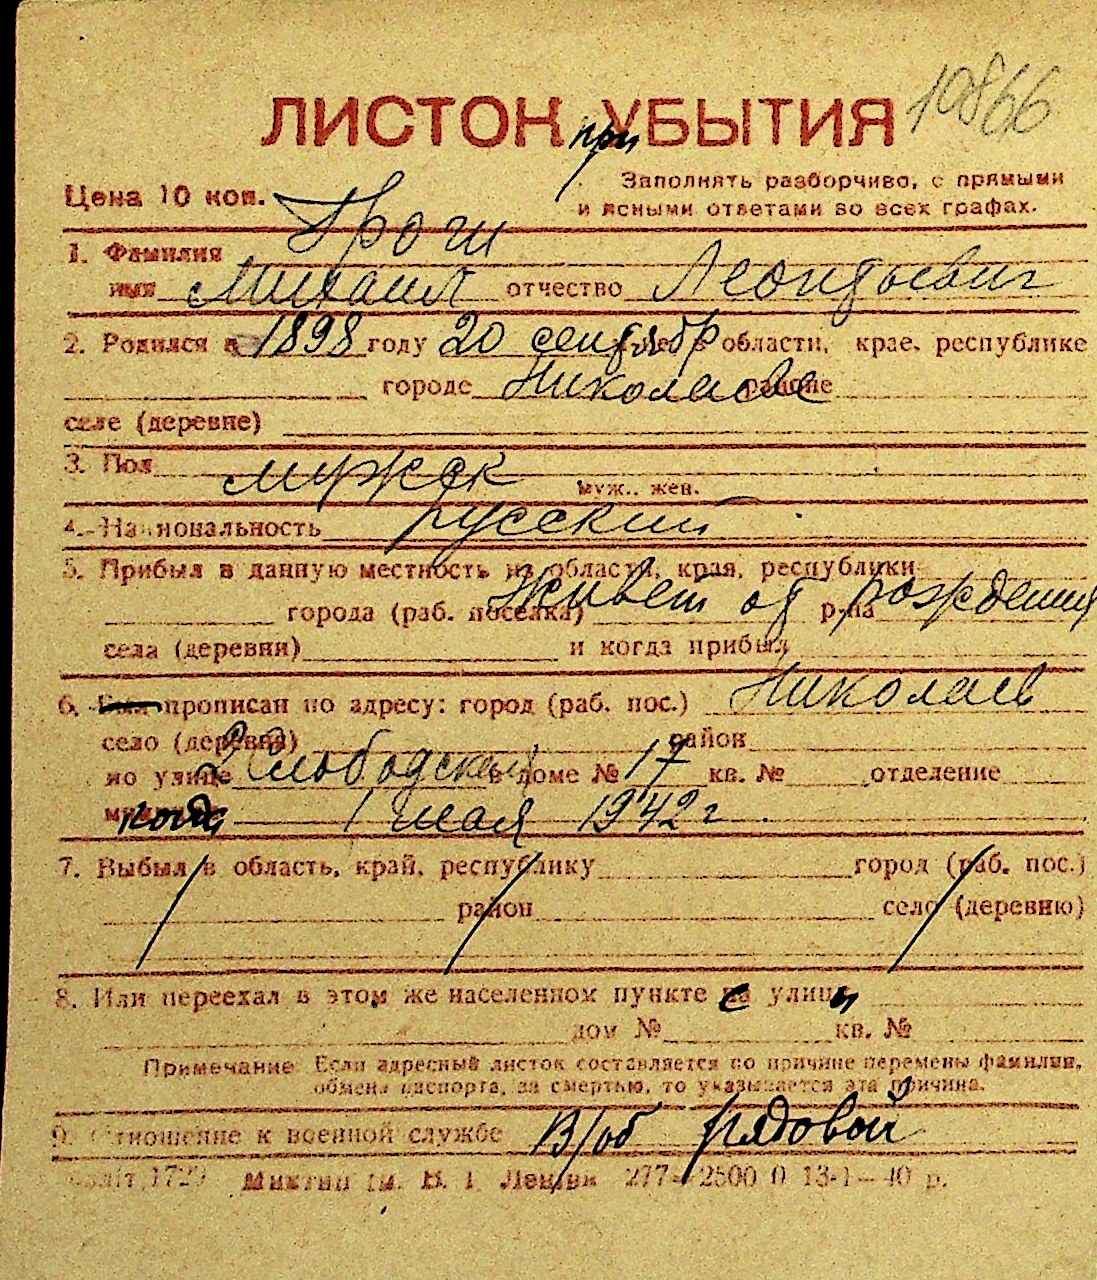 10866
ЛИСТОК при УБЫТИЯ
Цена 10 коп.
Заполнять разборчиво, с прямыми
и ясными ответами во всех графах.
1. Фамилия
имя Михаил отчество Леонтьевич
2. Родился в 1898 году 20 сентябр области, крае, республике
городе Николаеве районе
село (деревне)
3. Пол мужск муж., жен.
4. Национальность русский
5. Прибыл в данную местность из области, края, республики
города (раб. поселка) Живет от р-на рождения
села (деревни) и когда прибыл
6. прописан по адресу: город (раб. пос.) Николаев
село (деревня) район
по улице 2 Слободская в доме № 17 кв. № отделение
когда 1 мая 1942 г.
7. Выбыл в область, край, республику город (раб. пос.)
район село (деревню)
8. Или переехал в этом же населенном пункте с улицы
дом № кв. №
Примечание: Если адресный листок составляется по причине перемены фамилии,
обмена паспорта, за смертью, то указывается эта причина.
9. Отношение к военной службе В/об рядовой
1729 им. В. І. 277—2500 0 13-1—40 р.